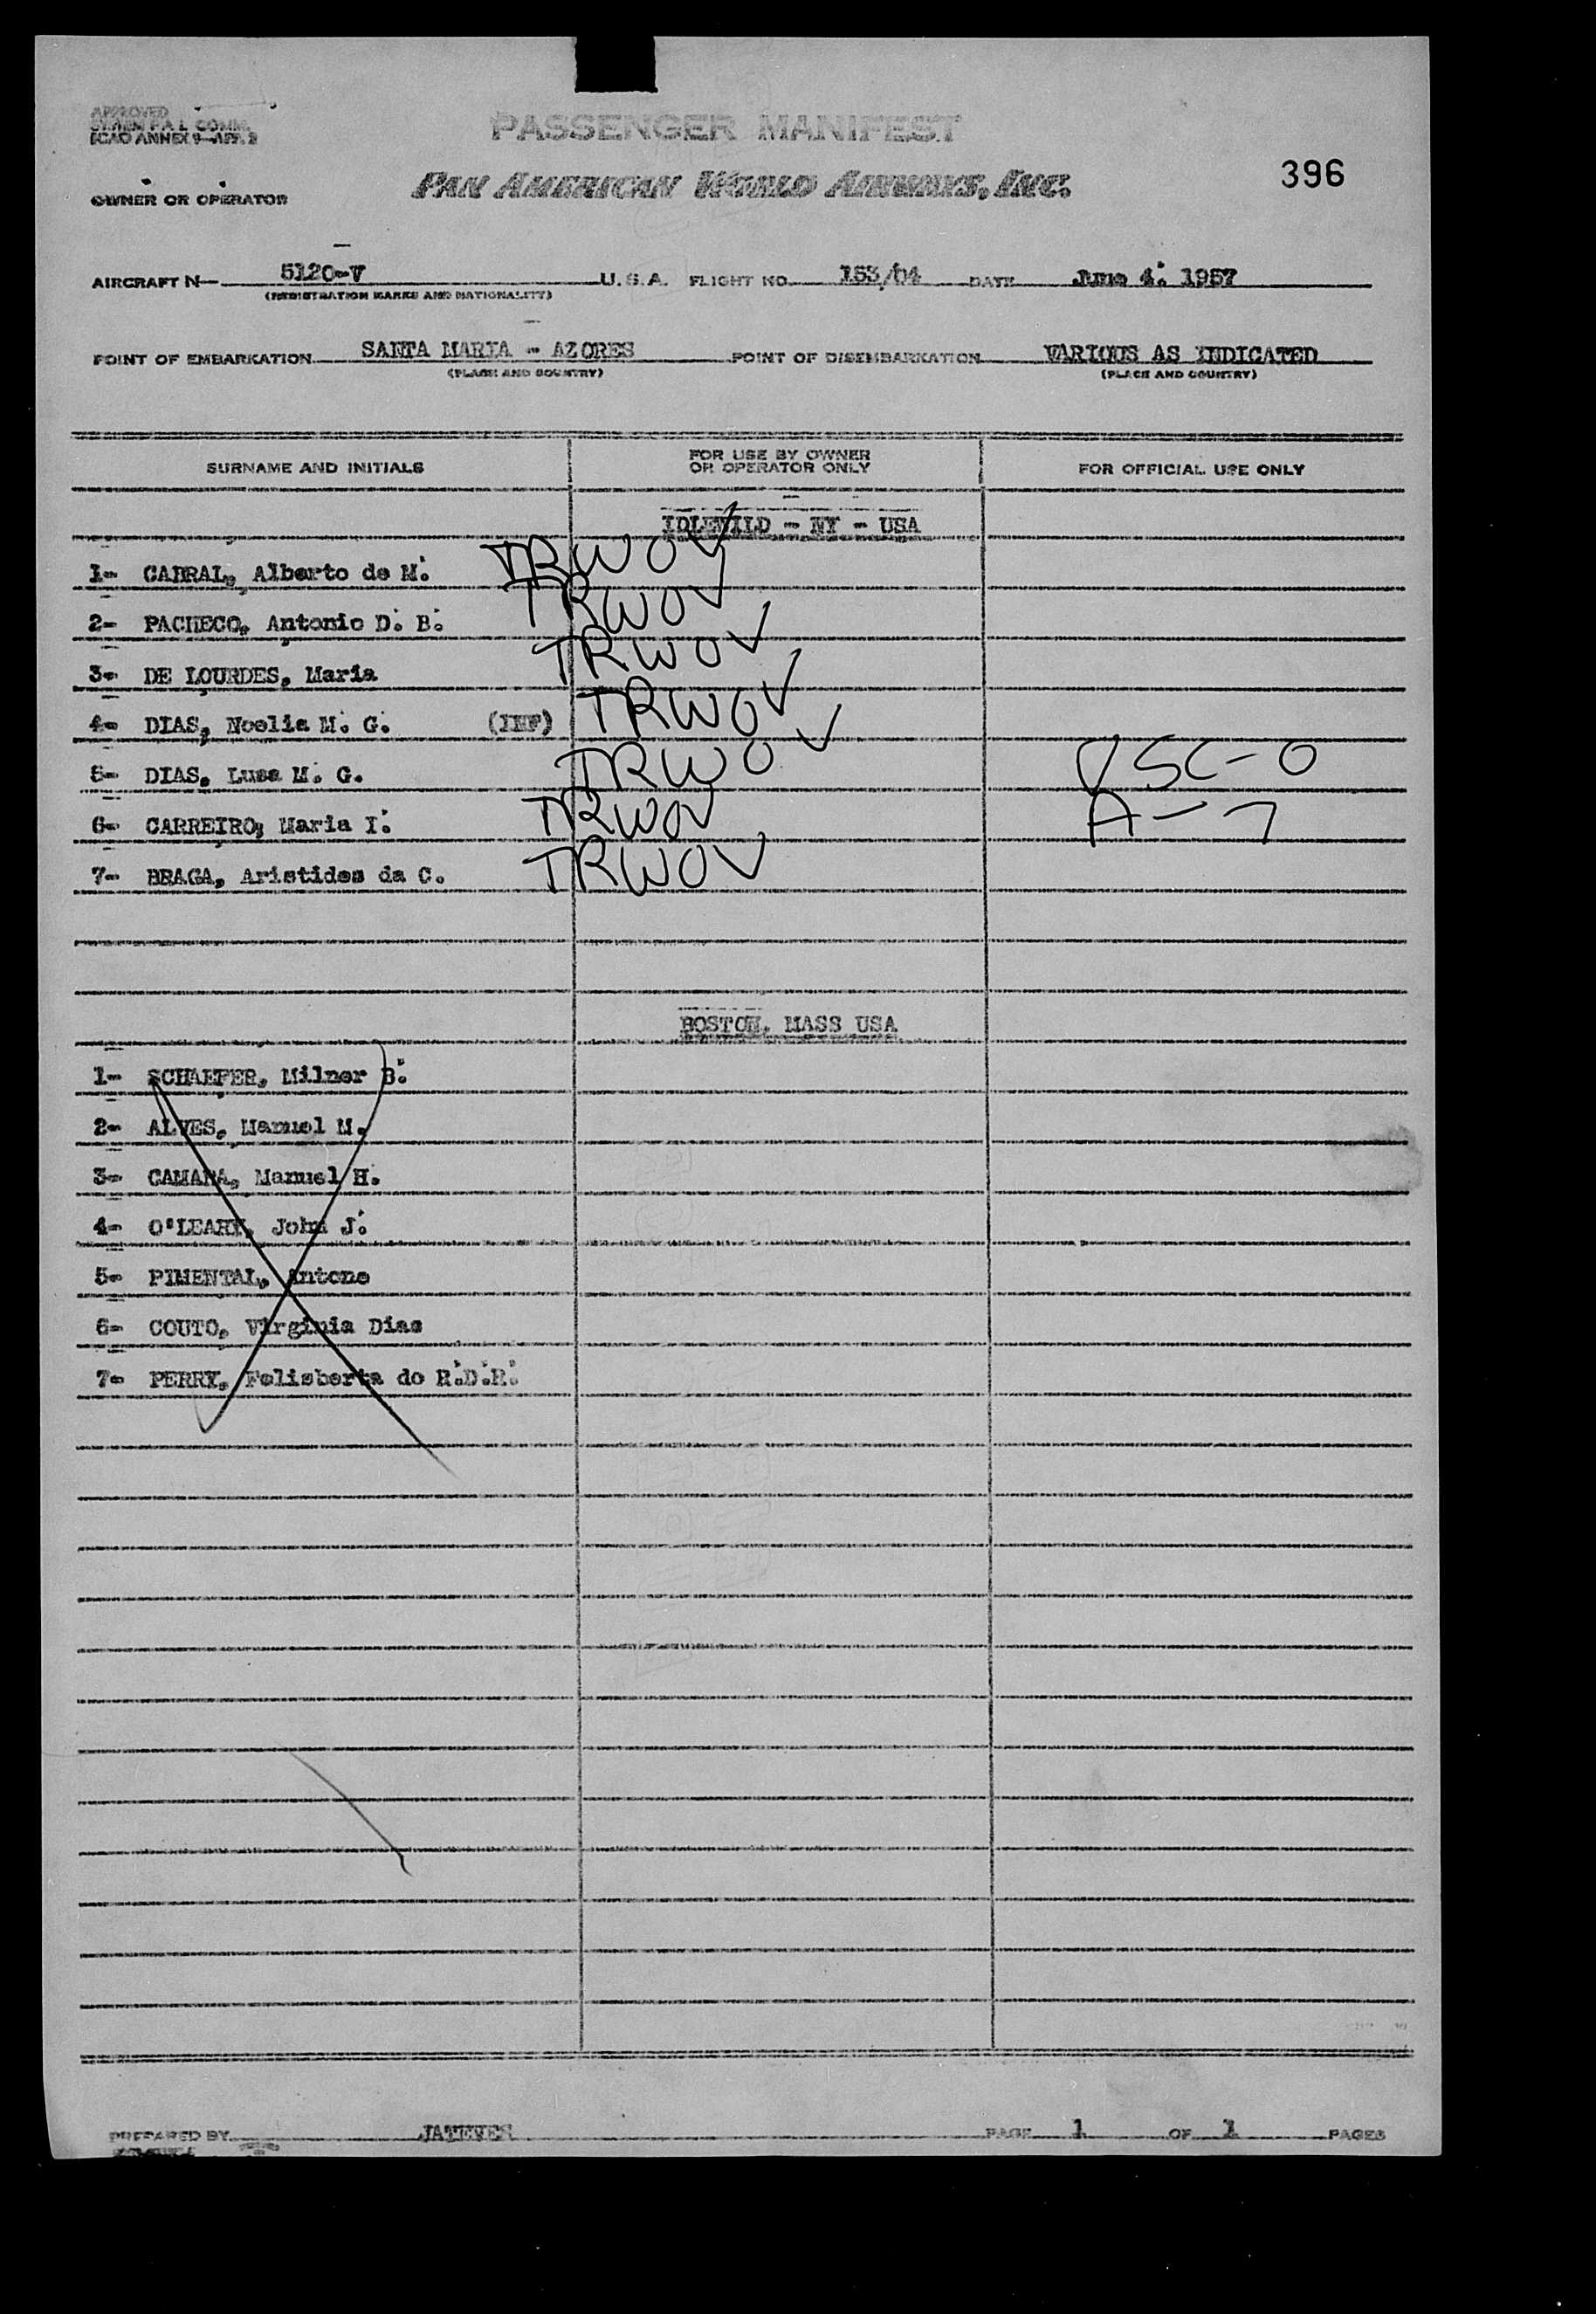 APPROVED
ICAO ANNEX 9—APP. 2
PASSENGER MANIFEST
PAN AMERICAN WORLD AIRWAYS, INC.
396
OWNER OR OPERATOR
AIRCRAFT N— 5120-V U. S. A. FLIGHT NO. 153/04 DATE June 4. 1957
(REGISTRATION MARKS AND NATIONALITY)
POINT OF EMBARKATION SANTA MARIA - AZORES POINT OF DISEMBARKATION VARIOUS AS INDICATED
(PLACE AND COUNTRY) (PLACE AND COUNTRY)
SURNAME AND INITIALS FOR USE BY OWNER OR OPERATOR ONLY FOR OFFICIAL USE ONLY
IDLEWILD - NY - USA
1- CABRAL, Alberto de M. TRWOV
2- PACHECO, Antonio D. B. TRWOV
3- DE LOURDES, Maria TRWOV
4- DIAS, Noelia M. G. (INF) TRWOV
5- DIAS, Lusa M. G. TRWOV USC-0
6- CARREIRO, Maria I. TRWOV A-7
7- BRAGA, Aristides da C. TRWOV
BOSTON, MASS USA
1- SCHAEFER, Milner B.
2- ALVES, Manuel M.
3- CAMARA, Manuel H.
4- O'LEARY, John J.
5- PIMENTAL, Antone
6- COUTO, Virginia Dias
7- PERRY, Felisberta do R.D.R.
PREPARED BY PAGE 1 OF 1 PAGES